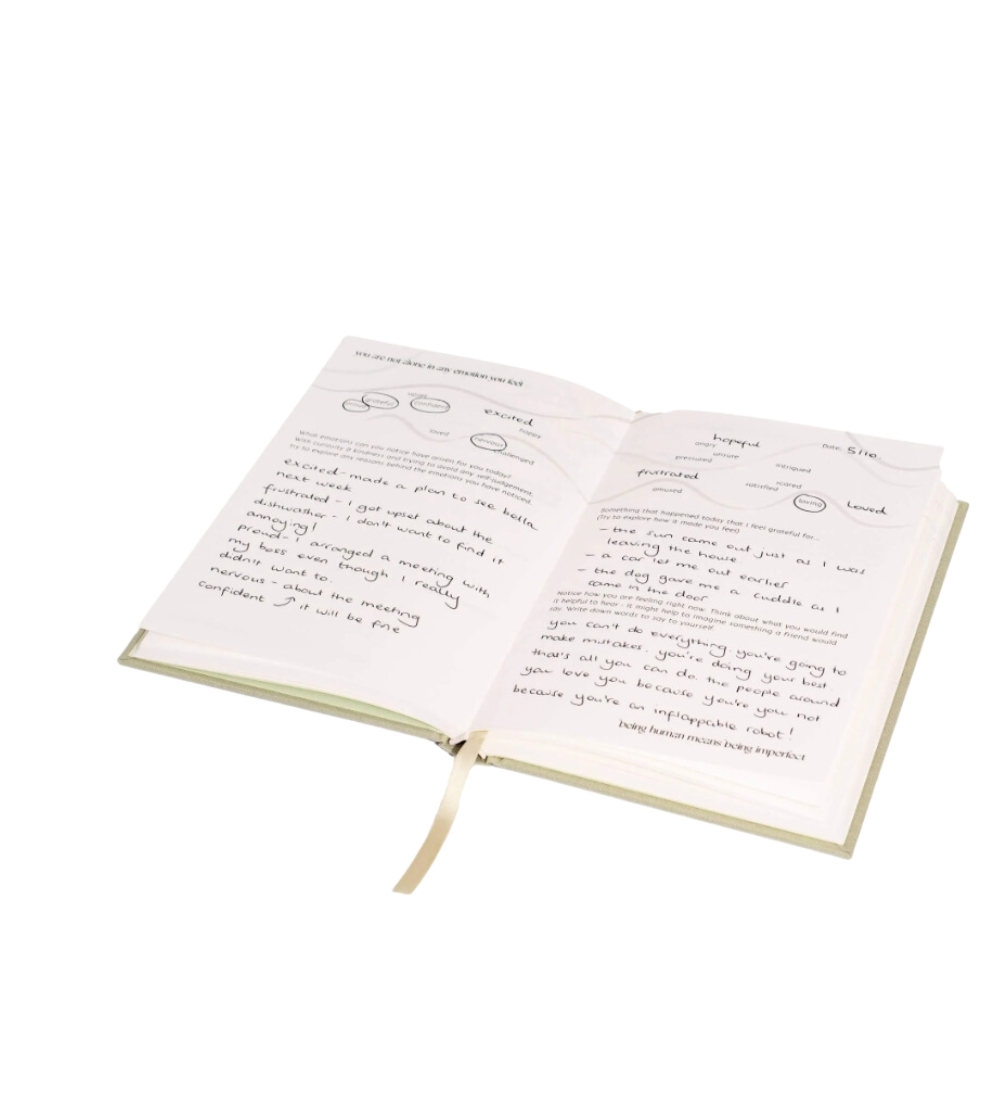 you are not alone in any emotion you feel
proud grateful confident
excited
loved nervous happy
challenged
What emotions can you notice have arisen for you today?
With curiosity & kindness and trying to avoid any self-judgement,
try to explore any reasons behind the emotions you have noticed.
excited - made a plan to see bella
next week.
frustrated - I got upset about the
dishwasher - I don't want to find it
annoying!
proud - I arranged a meeting with
my boss even though I really
didn't want to.
nervous - about the meeting
confident ↗ it will be fine
hopeful Date: 5/10.
angry unsure
pressured intrigued
frustrated scared
amused satisfied loving Loved
Something that happened today that I feel grateful for...
(Try to explore how it made you feel)
- the sun came out just as I was
leaving the house.
- a car let me out earlier
- the dog gave me a cuddle as I
came in the door
Notice how you are feeling right now. Think about what you would find
it helpful to hear - it might help to imagine something a friend would
say. Write down words to say to yourself.
you can't do everything. you're going to
make mistakes. you're doing your best.
that's all you can do. the people around
you love you because you're you not
because you're an inflappable robot!
being human means being imperfect